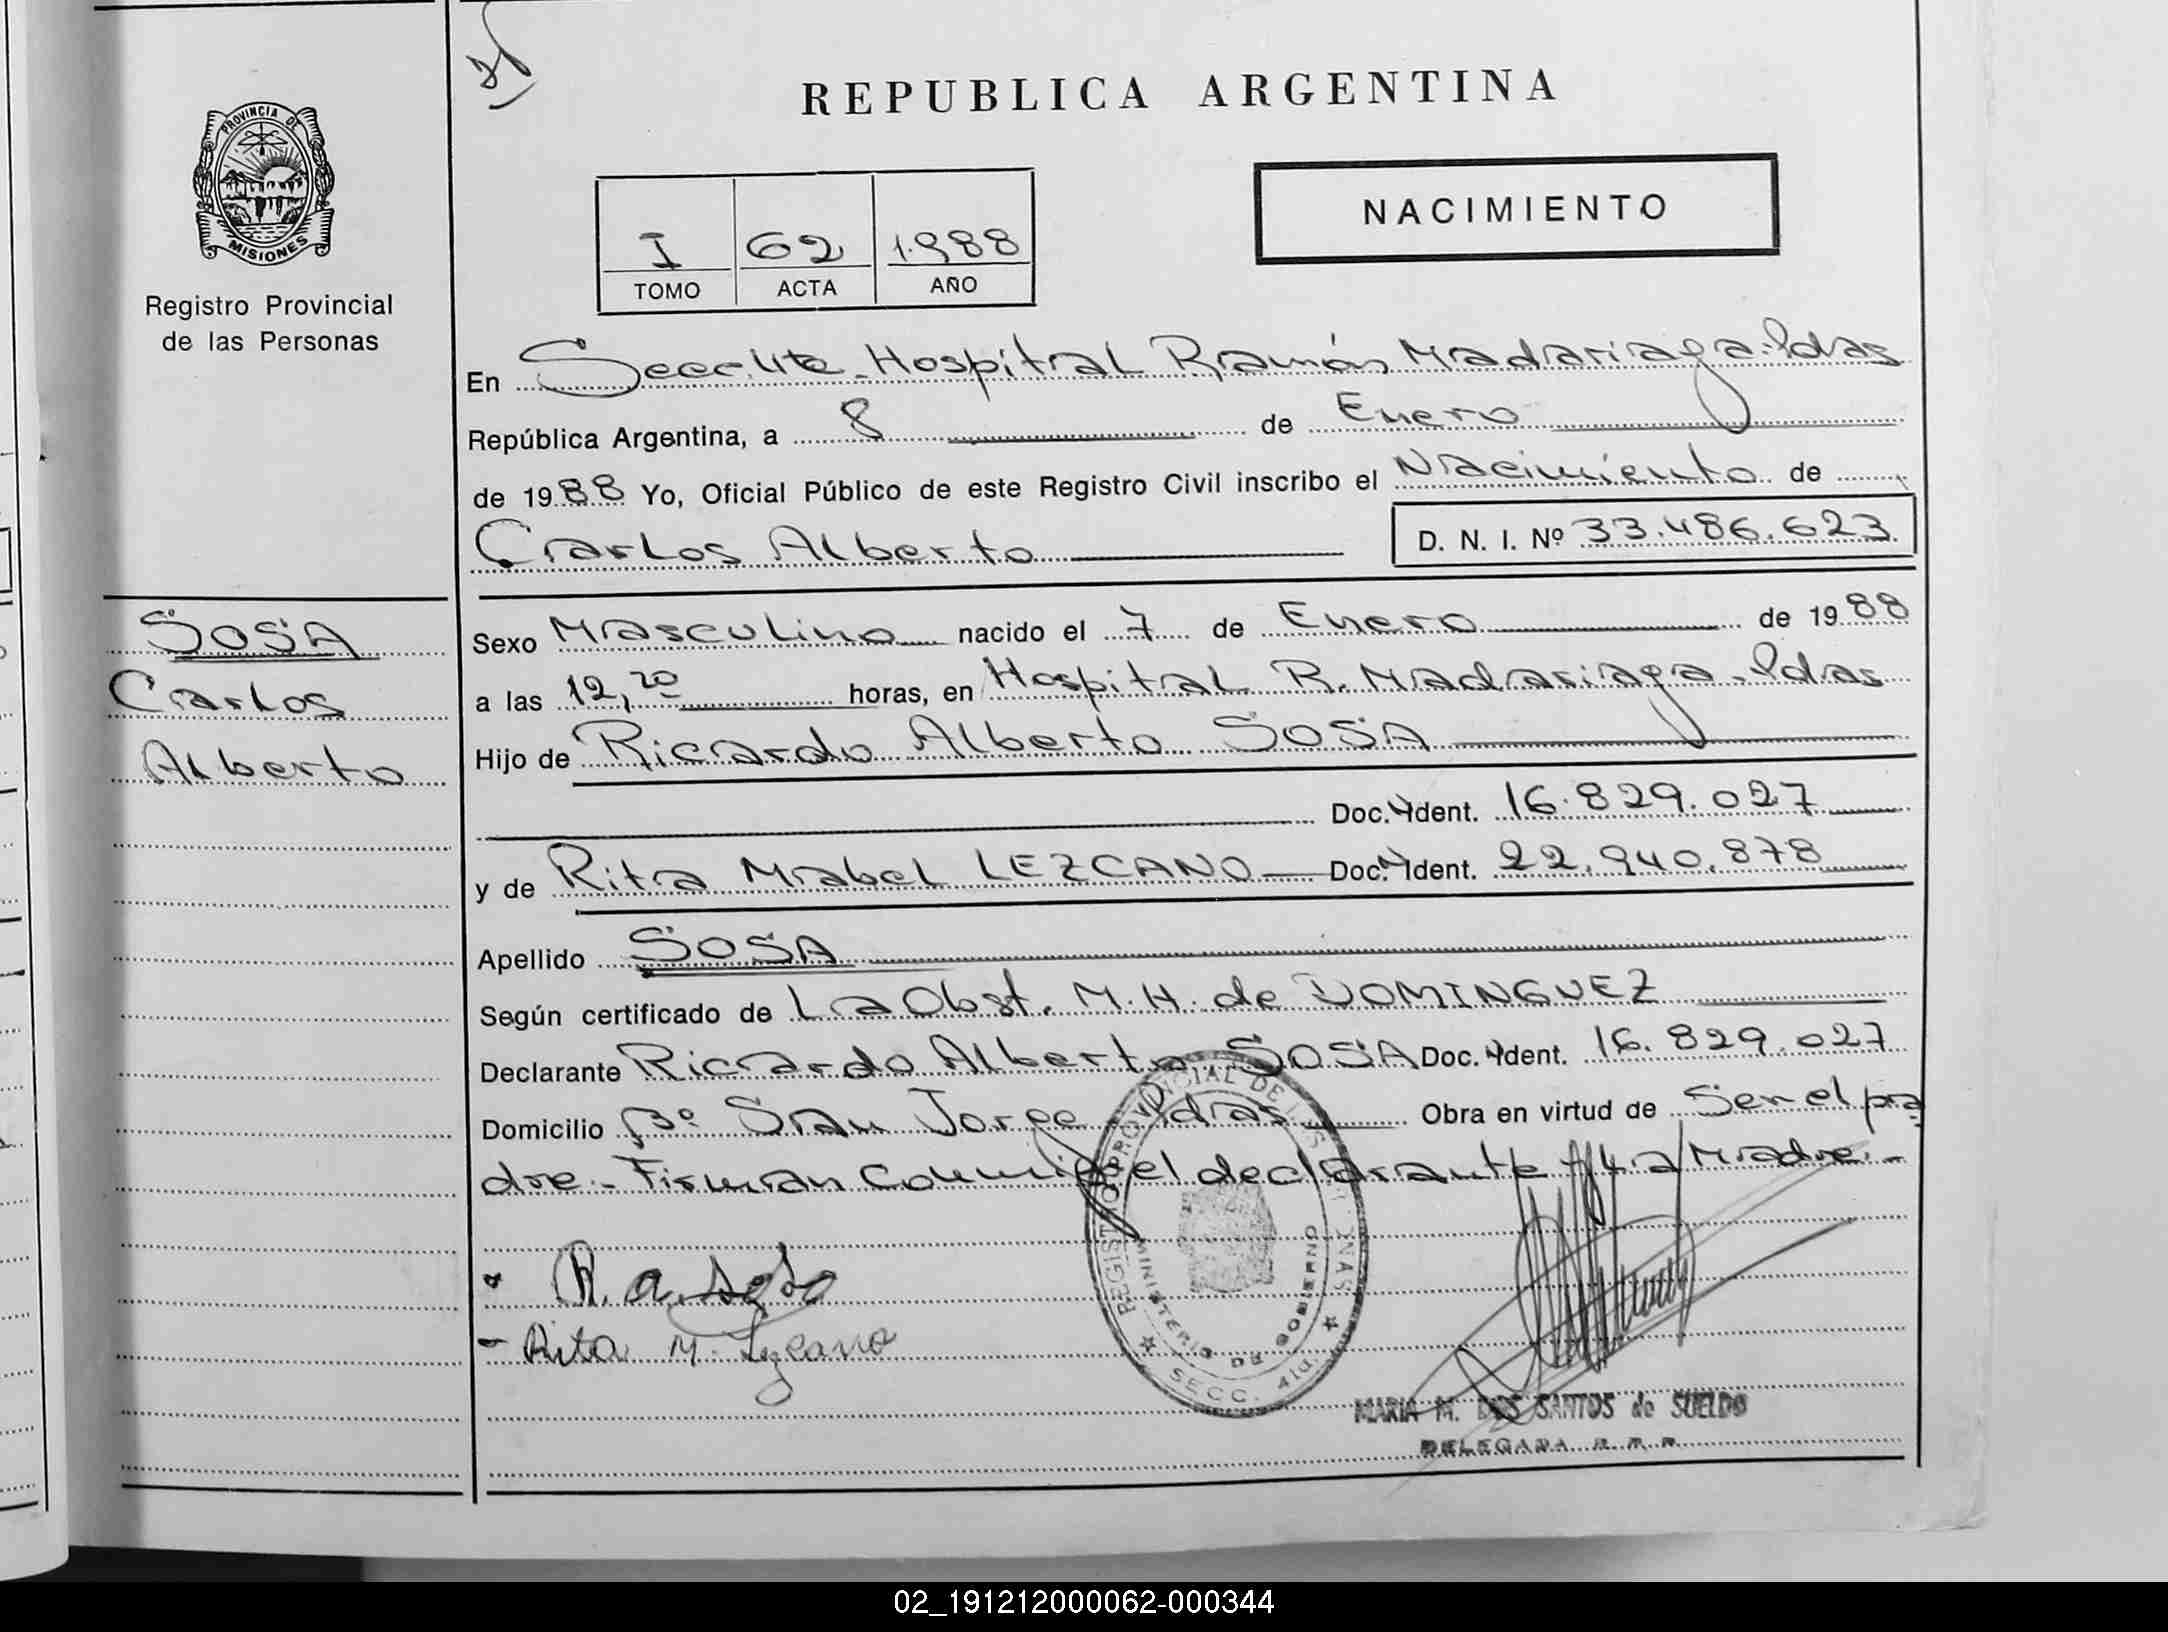 REPUBLICA ARGENTINA
PROVINCIA DE
MISIONES
Registro Provincial
de las Personas
I 62 1.988
TOMO ACTA AÑO
NACIMIENTO
En Secc. 4ta. Hospital Ramón Madariaga-Pdas
República Argentina, a 8 de Enero
de 1988 Yo, Oficial Público de este Registro Civil inscribo el Nacimiento de
Carlos Alberto D. N. I. Nº 33.486.623
SOSA
Carlos
Alberto
Sexo Masculino nacido el 7 de Enero de 1988
a las 12,20 horas, en Hospital R. Madariaga-Pdas
Hijo de Ricardo Alberto SOSA
Doc. Ident. 16.829.027
y de Rita Mabel LEZCANO Doc. Ident. 22.940.878
Apellido SOSA
Según certificado de La Obst. M.H. de DOMINGUEZ
Declarante Ricardo Alberto SOSA Doc. Ident. 16.829.027
Domicilio Bº San Jorge Pdas Obra en virtud de Ser el pa
dre.- Firman conmigo el declarante y la Madre.-
R. A. Sosa
Rita M. Lezcano
REGISTRO PROVINCIAL DE LAS PERSONAS
MINISTERIO DE GOBIERNO
SECC. 4ta.
MARIA M. DOS SANTOS de SUELDO
DELEGADA R. P. P.
02_191212000062-000344